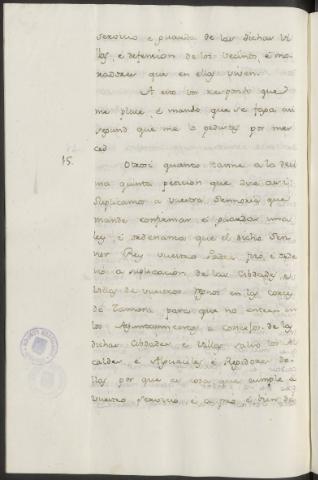 servicio e guarda de las dichas Vi
llas, é defension de los Vecinos, é mo
radores que en ellas viven.
A esto vos respondo que
me place, é mando que se faga asi
segund que me lo pedistes por mer
ced
15. Otrosi quanto tanne a la deci
ma quinta peticion que dice asi:
Suplicamos a vuestra Sennoria que
mande confirmar é guardar una
ley, é ordenanza que el dicho Sen
nor Rey vuestro Padre fizo, é orde
nó a suplicacion de las Cibdades, é
Villas de vuestros Regnos en las Cortes
de Zamora para que no entren en
los Ayuntamientos é concejos de las
dichas Cibdades é Villas salvo los Al
caldes é Alguaciles é Regidores de
llas por que es cosa que cumple á
vuestro servicio é a pro é bien de